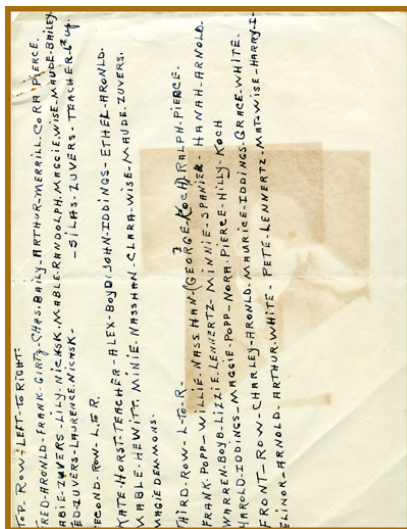 TOP ROW: LEFT TO RIGHT:
FRED-ARONLD-FRANK-GIRTZ-CHAS.BAILY-ARTHUR-MERRILL-CORA PIERCE.
ABIE-ZUVERS-LILY-NICKSK-MABLE-RANDOLPH.MAGGIE.WISE-MAUDE-BAILEY.
ED.ZUVERS-LAURENCE.NICKSK- -SILAS.ZUVERS-TEACHER
SECOND-ROW-L.TO R.
KATE HORST-TEACHER-ALEX-BOYD JOHN-IDDINGS-ETHEL-ARONLD.
MABLE-HEWITT. MINIE-NASSHAN-CLARA-WISE-MAUDE.ZUVERS.
MAGIE DEMMONS.
THIRD.ROW-L-TO R-
FRANK-POPP-WILLIE-NASSHAN-(GEORGE-KOCH) RALPH-PIERCE.
WARREN-BOYD-LIZZIE-LENNERTZ-MINNIE-SPANIER-HANAH-ARNOLD.
HAROLD-IDDINGS-MAGGIE-POPP-NORA-PIERCE-HILLY-KOCH
FRONT-ROW-CHARLEY-ARONLD-MAURICE-IDDINGS-GRACE-WHITE.
ELINOR-ARNOLD-ARTHUR-WHITE-PETE-LENNERTZ-MAT-WISE-HARRY-I-